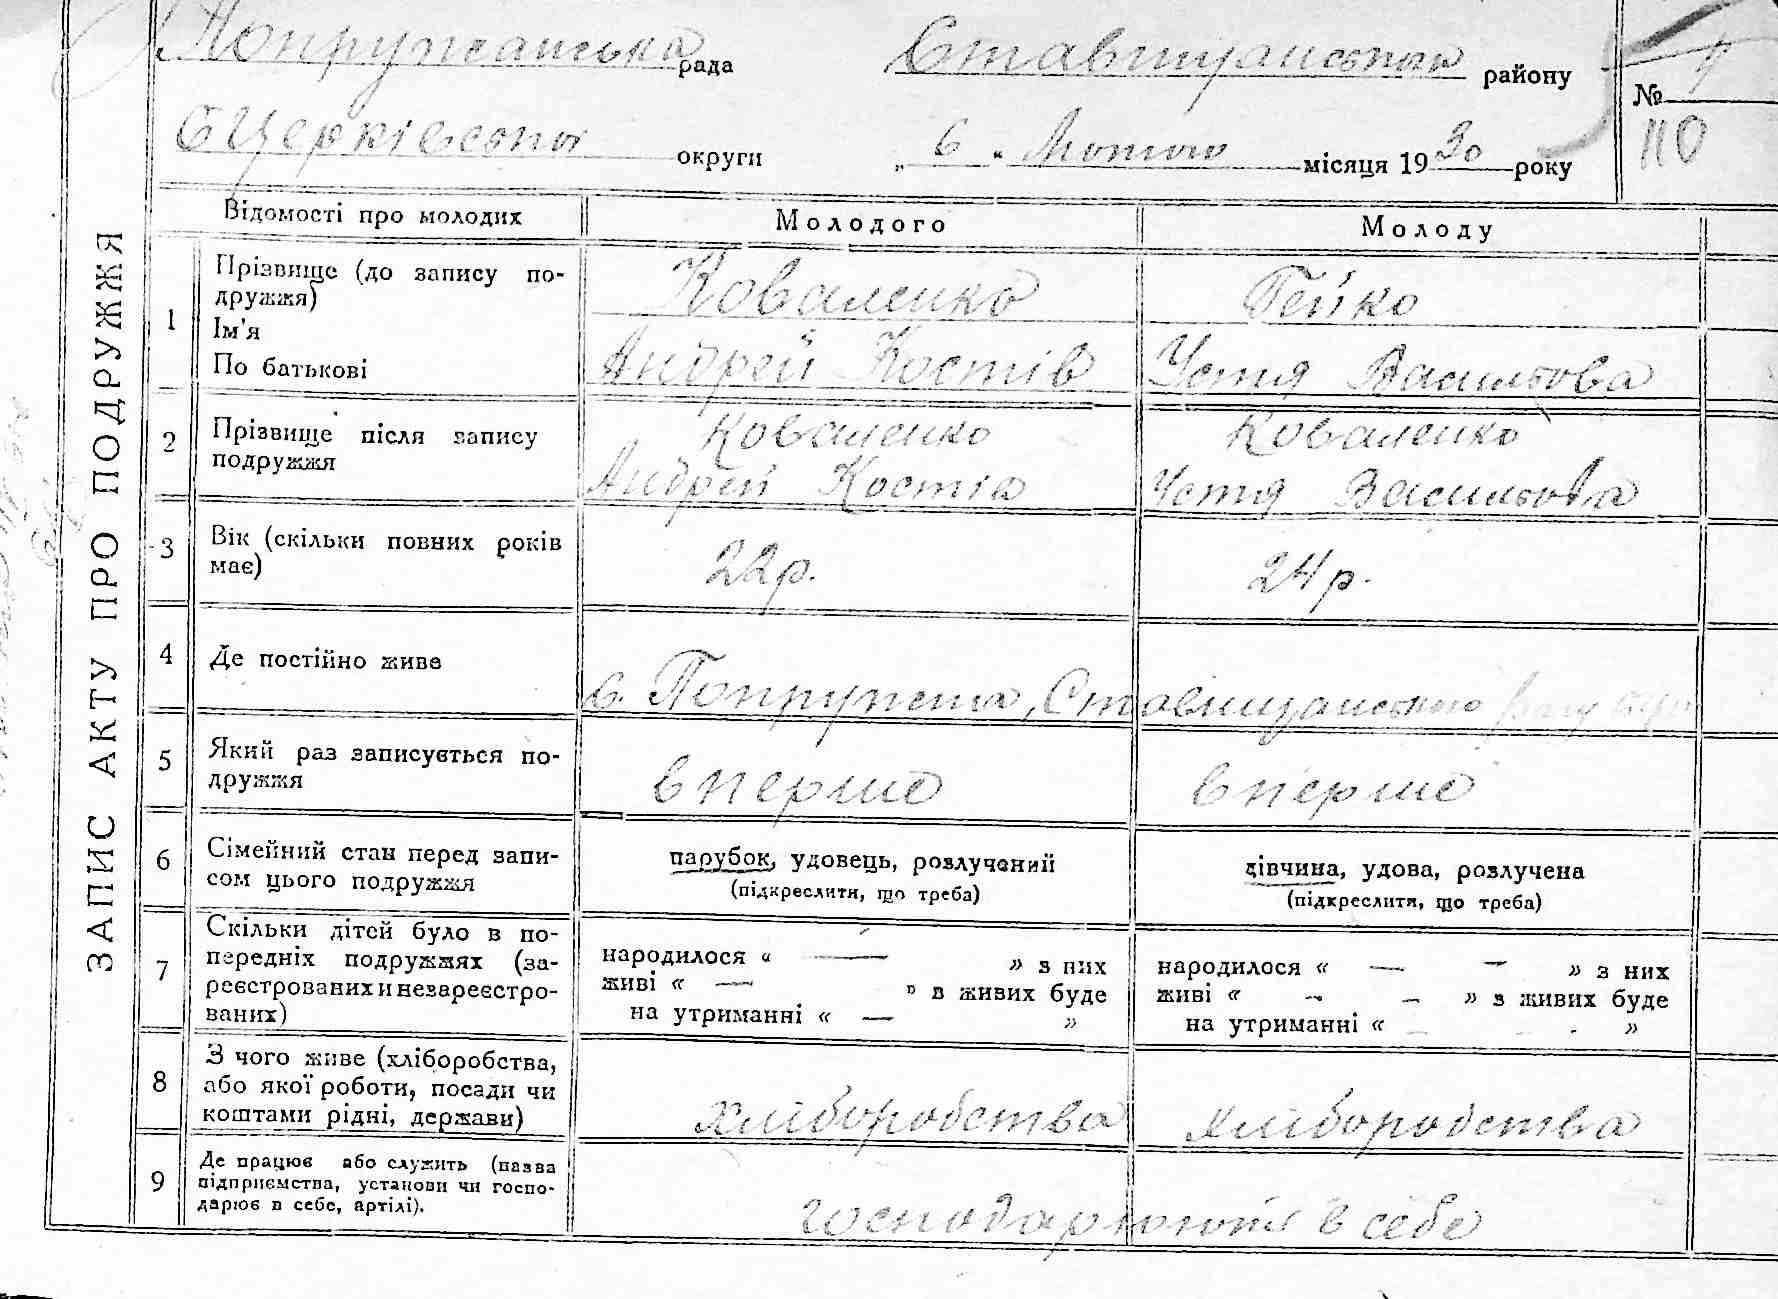 Попружанська рада Ставищанського району №
БЦерківської округи „ 6 “ Лютого місяця 1930 року 110
ЗАПИС АКТУ ПРО ПОДРУЖЖЯ
Відомості про молодих Молодого Молоду
1 Прізвище (до запису по-
дружжя)
Ім'я
По батькові
Коваленко
Андрей Костів
Гейко
Устя Васильова
2 Прізвище після запису
подружжя
Коваленко
Андрей Костів
Коваленко
Устя Васильова
3 Вік (скільки повних років
має)
22 р. 24 р.
4 Де постійно живе
с. Попружна, Ставищанського району
5 Який раз записується по-
дружжя
вперше вперше
6 Сімейний стан перед запи-
сом цього подружжя
парубок, удовець, розлучений
(підкреслити, що треба)
дівчина, удова, розлучена
(підкреслити, що треба)
7 Скільки дітей було в по-
передніх подружжях (за-
реєстрованих и незареєстро-
ваних)
народилося « — » з них
живі « — » в живих буде
на утриманні « — »
народилося « — — » з них
живі « - - » з живих буде
на утриманні « - - »
8 З чого живе (хліборобства,
або якої роботи, посади чи
коштами рідні, держави)
хліборобства хліборобства
9 Де працює або служить (назва
підприємства, установи чи госпо-
дарює в себе, артілі).
господарюють в себе